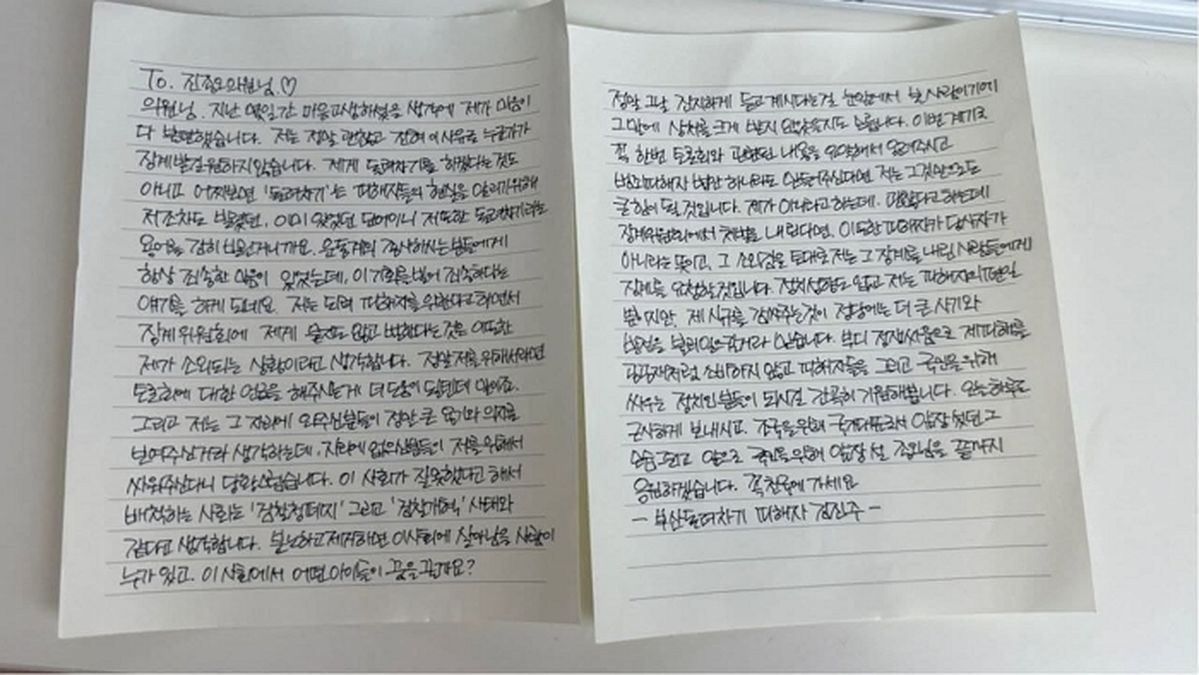 To. 진종오의원님♡
의원님. 지난 몇일간 마음고생하셨을 생각에 제가 마음이
다 불편했습니다. 저는 정말 괜찮고 전혀 이 사유로 누군가가
징계받길 원하지 않습니다. 제게 돌려차기를 하겠다는 것도
아니고 어쩌보면 '돌려차기'는 피해자들의 현실을 알리기위해
저조차도 빌렸던, 이미 있었던 단어이니 저 또한 돌려차기라는
용어를 감히 빌린거니까요. 운동계의 종사하시는분들에게
항상 죄송한 마음이 있었는데, 이 기회를 빌어 죄송하다는
얘기를 하게 되네요. 저는 되려 피해자를 위한다고 하면서
징계위원회에 제게 묻지도 않고 벌한다는것은 이또한
제가 소외되는 상황이라고 생각합니다. 정말 저를 위해서라면
토론회에 대한 언급을 해주시는게 더 도움이 될텐데 말이죠.
그리고 저는 그 자리에 와주신분들이 정말 큰 용기와 의지를
보여주신거라 생각하는데, 자리에 없으신분들이 저를 위해서
싸워주신다니 당황스럽습니다. 이 사회가 잘못했다고 해서
배척하는 사회는 '검찰청폐지' 그리고 '검찰개혁' 사태와
같다고 생각합니다. 비난하고 제거하면 이 사회에 살아남을 사람이
누가 있고. 이 사회에서 어떤 아이들이 꿈을 꿀까요?
정말 그날 진지하게 듣고계시다는걸 눈앞에서 본 사람이기에
그말에 상처를 크게 받지 않았을지도 모릅니다. 이번 계기로
꼭 한번 토론회와 관련된 내용을 요약해서 올려주시고
범죄피해자 법안 하나라도 만들어주신다면 저는 그것만으로도
큰 힘이 될 것입니다. 제가 아니라고 하는데. 괜찮다고 하는데
징계위원회에서 처벌을 내린다면. 이 또한 피해자가 당사자가
아니라는 뜻이고, 그 소외감을 토대로 저는 그 징계를 내린 사람들에게
징계를 요청할 것입니다. 정치성향도 없고 저는 피해자의 편일
뿐이지만, 제 식구를 감싸주는것이 정당에는 더 큰 사기와
발전을 불러일으킬거라 믿습니다. 부디 정쟁싸움으로 제 피해를
소비하지 않고 피해자들을 그리고 국민을 위해
싸우는 정치인분들이 되시길 간곡히 기원해봅니다. 오늘 하루도
근사하게 보내시고. 조국을 위해 국가대표로서 앞장 섰던 그
모습 그리고 앞으로 국민을 위해 앞장 설 종오님을 끝까지
응원하겠습니다. 꼭 천국에 가세요
- 부산돌려차기 피해자 김진주 -